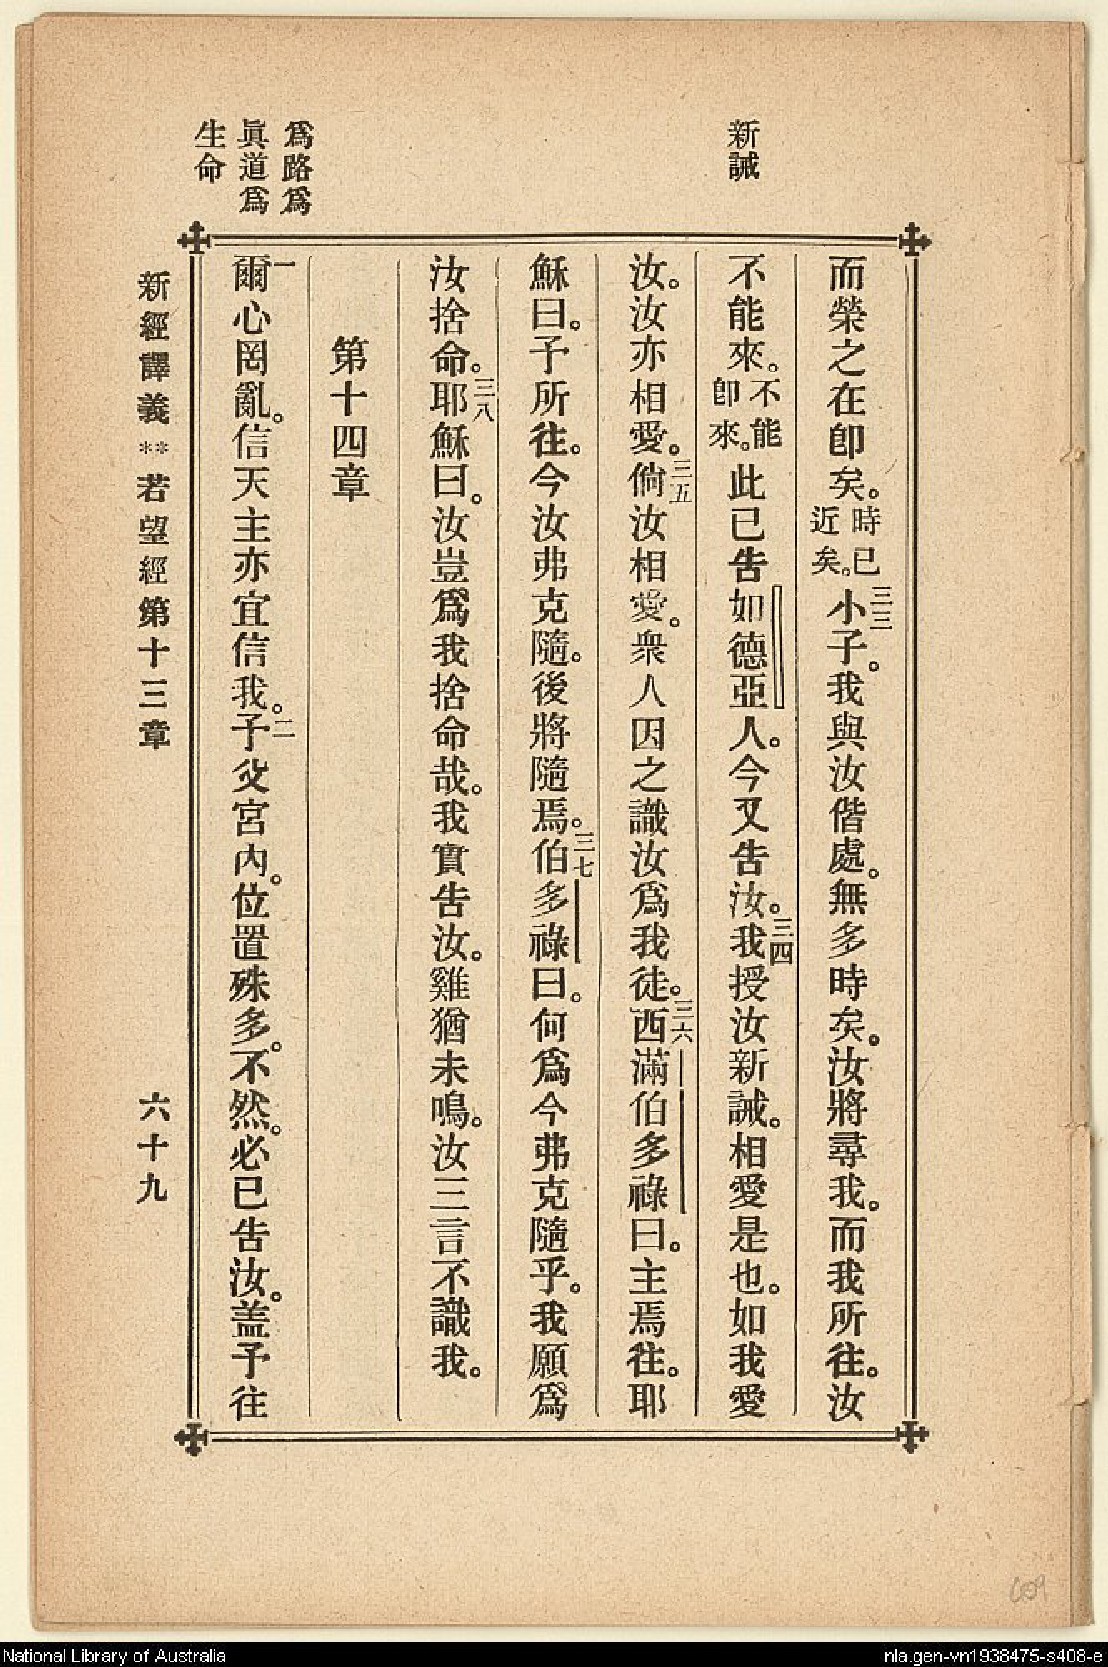 新誡
為路為
眞道為
生命
而榮之在卽矣。時已近矣。三三小子。我與汝偕處。無多時矣。汝將尋我。而我所往。汝
不能來。不能卽來。此已告如德亞人。今又告汝。三四我授汝新誡。相愛是也。如我愛
汝。汝亦相愛。三五倘汝相愛。衆人因之識汝爲我徒。三六西滿伯多祿曰。主焉往。耶
穌曰。予所往。今汝弗克隨。後將隨焉。三七伯多祿曰。何爲今弗克隨乎。我願爲
汝捨命。三八耶穌曰。汝豈爲我捨命哉。我實告汝。雞猶未鳴。汝三言不識我。
第十四章
一爾心罔亂。信天主亦宜信我。二予父宮內。位置殊多。不然。必已告汝。盖予往
新經譯義**若望經第十三章 六十九
609
National Library of Australia
nla.gen-vn1938475-s408-e